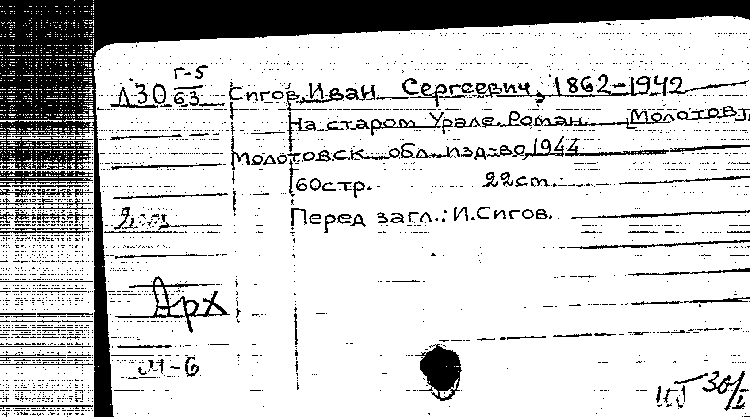 Г-5
Л30 63 Сигов, Иван Сергеевич, 1862-1942
На старом Урале. Роман. [Молотов],
Молотовск. обл. изд-во, 1944
60стр. 22см.
Перед загл.: И.Сигов.
Арх
М-6